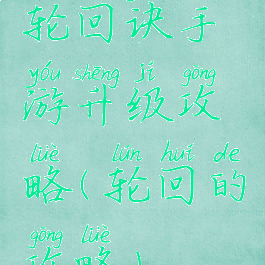 轮回诀手
yóu shēng jí gōng
游升级攻
lüè lún huí de
略(轮回的
gōng lüè
攻略)